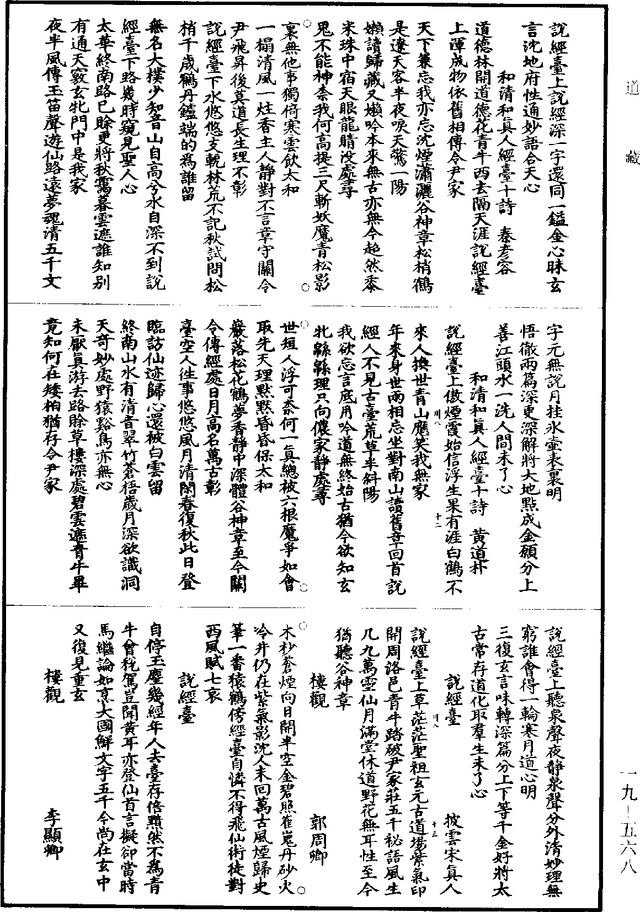 道藏
說經臺上說經深一字還同一鎰金心昧玄
言沈地府性通妙語合天心
和清和真人經臺十詩　秦彥容
道德林開道德花青牛西去隔天涯說經臺
上渾成物依舊相傳令尹家
天下兼忘我亦忘沈煙瀟灑谷神章松梢鶴
是遼天客半夜唳天驚一陽
懶讀歸藏又懶吟本來無古亦無今超然黍
米珠中宿天眼龍睛没處尋
鬼不能神柰我何高提三尺斬妖魔青松影
裏無他事獨倚寒雲飲太和
一榻清風一炷香主人靜對不言章守關令
尹飛昇後莫道長生理不彰
說經臺下水悠悠支輗林荒不記秋試問松
梢千歲鶴丹鑪端的為誰留
無名大樸少知音山自高兮水自深不到說
經臺下路幾時窺見聖人心
太華終南路已賖更將秋靄暮雲遮誰知別
有通天竅玄牝門中是我家
夜半風傳玉笛聲遊仙路遠夢魂清五千文
字元無說月挂氷壷表裏明
悟徹兩篇深更深解將大地點成金願分上
善江頭水一洗人間未了心
和清和真人經臺十詩　黃道朴
說經臺上傲煙霞始信浮生果有涯白鶴不
來人換世青山應笑我無家
年來身世兩相忘坐對南山讀舊章回首說
經人不見古臺荒草半斜陽
我欲忘言底用吟道無終始古猶今欲知玄
牝緜緜理只向儂家靜處尋
世短人浮可柰何一真總被六根魔爭如會
取先天理黙黙昏昏保太和
巖落松花鶴夢香靜中深體谷神章至今關
令傳經處日月高名萬古彰
臺空人徃事悠悠風月清閑春復秋此日登
臨訪仙迹歸心還被白雲留
終南山水有清音翠竹蒼梧歲月深欲識洞
天奇妙處野猿谿鳥亦無心
未厭真游去路賖草樓深處碧雲遮青牛畢
竟知何在矮栢猶存令尹家
說經臺上聽泉聲夜靜泉聲分外清妙理無
窮誰會得一輪寒月道心明
三復玄言味轉深篇分上下等千金好將太
古常存道化取羣生未了心
說經臺　披雲宋真人
說經臺上草茫茫聖祖玄元古道塲紫氣印
開周洛邑青牛踏破尹家莊五千秘語風生
几九萬靈仙月滿堂休道野花無耳性至今
猶聽谷神章
樓觀　郭周卿
木杪蒼煙向日開半空金碧照崔嵬丹砂火
冷井仍在紫氣影沈人未回萬古風煙歸史
筆一番猿鶴傍經臺自憐不得飛仙術徒對
西風賦七哀
說經臺
自停玉麈幾經年人去臺存倍黯然不為青
牛會稅駕豈聞黃耳亦登仙首言擬卻當時
馬繼論如烹大國鮮文字五千今尚在玄中
又復見重玄
樓觀　李顯卿
一九-五六八